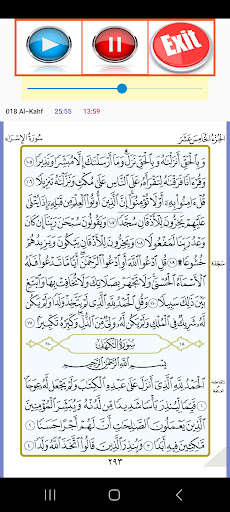 Exit
018 Al-Kahf 25:55 13:59
سُورَةُ الإِسْرَاءِ الجُزْءُ الخَامِسَ عَشَرَ
وَبِالْحَقِّ أَنزَلْنَاهُ وَبِالْحَقِّ نَزَلَ وَمَا أَرْسَلْنَاكَ إِلَّا مُبَشِّرًا وَنَذِيرًا ١٠٥
وَقُرْآنًا فَرَقْنَاهُ لِتَقْرَأَهُ عَلَى النَّاسِ عَلَى مُكْثٍ وَنَزَّلْنَاهُ تَنزِيلًا ١٠٦
قُلْ آمِنُوا بِهِ أَوْ لَا تُؤْمِنُوا إِنَّ الَّذِينَ أُوتُوا الْعِلْمَ مِن قَبْلِهِ إِذَا يُتْلَى
عَلَيْهِمْ يَخِرُّونَ لِلْأَذْقَانِ سُجَّدًا ١٠٧ وَيَقُولُونَ سُبْحَانَ رَبِّنَا إِن كَانَ
وَعْدُ رَبِّنَا لَمَفْعُولًا ١٠٨ وَيَخِرُّونَ لِلْأَذْقَانِ يَبْكُونَ وَيَزِيدُهُمْ
خُشُوعًا ۩ ١٠٩ قُلِ ادْعُوا اللَّهَ أَوِ ادْعُوا الرَّحْمَٰنَ أَيًّا مَّا تَدْعُوا فَلَهُ
سَجْدَة
الْأَسْمَاءُ الْحُسْنَى وَلَا تَجْهَرْ بِصَلَاتِكَ وَلَا تُخَافِتْ بِهَا وَابْتَغِ
بَيْنَ ذَٰلِكَ سَبِيلًا ١١٠ وَقُلِ الْحَمْدُ لِلَّهِ الَّذِي لَمْ يَتَّخِذْ وَلَدًا وَلَمْ يَكُن لَّهُ
شَرِيكٌ فِي الْمُلْكِ وَلَمْ يَكُن لَّهُ وَلِيٌّ مِّنَ الذُّلِّ وَكَبِّرْهُ تَكْبِيرًا ١١١
سُورَةُ الكَهْفِ
بِسْمِ اللَّهِ الرَّحْمَٰنِ الرَّحِيمِ
الْحَمْدُ لِلَّهِ الَّذِي أَنزَلَ عَلَى عَبْدِهِ الْكِتَابَ وَلَمْ يَجْعَل لَّهُ عِوَجًا
١ قَيِّمًا لِّيُنذِرَ بَأْسًا شَدِيدًا مِّن لَّدُنْهُ وَيُبَشِّرَ الْمُؤْمِنِينَ
الَّذِينَ يَعْمَلُونَ الصَّالِحَاتِ أَنَّ لَهُمْ أَجْرًا حَسَنًا ٢
مَّاكِثِينَ فِيهِ أَبَدًا ٣ وَيُنذِرَ الَّذِينَ قَالُوا اتَّخَذَ اللَّهُ وَلَدًا ٤
٢٩٣